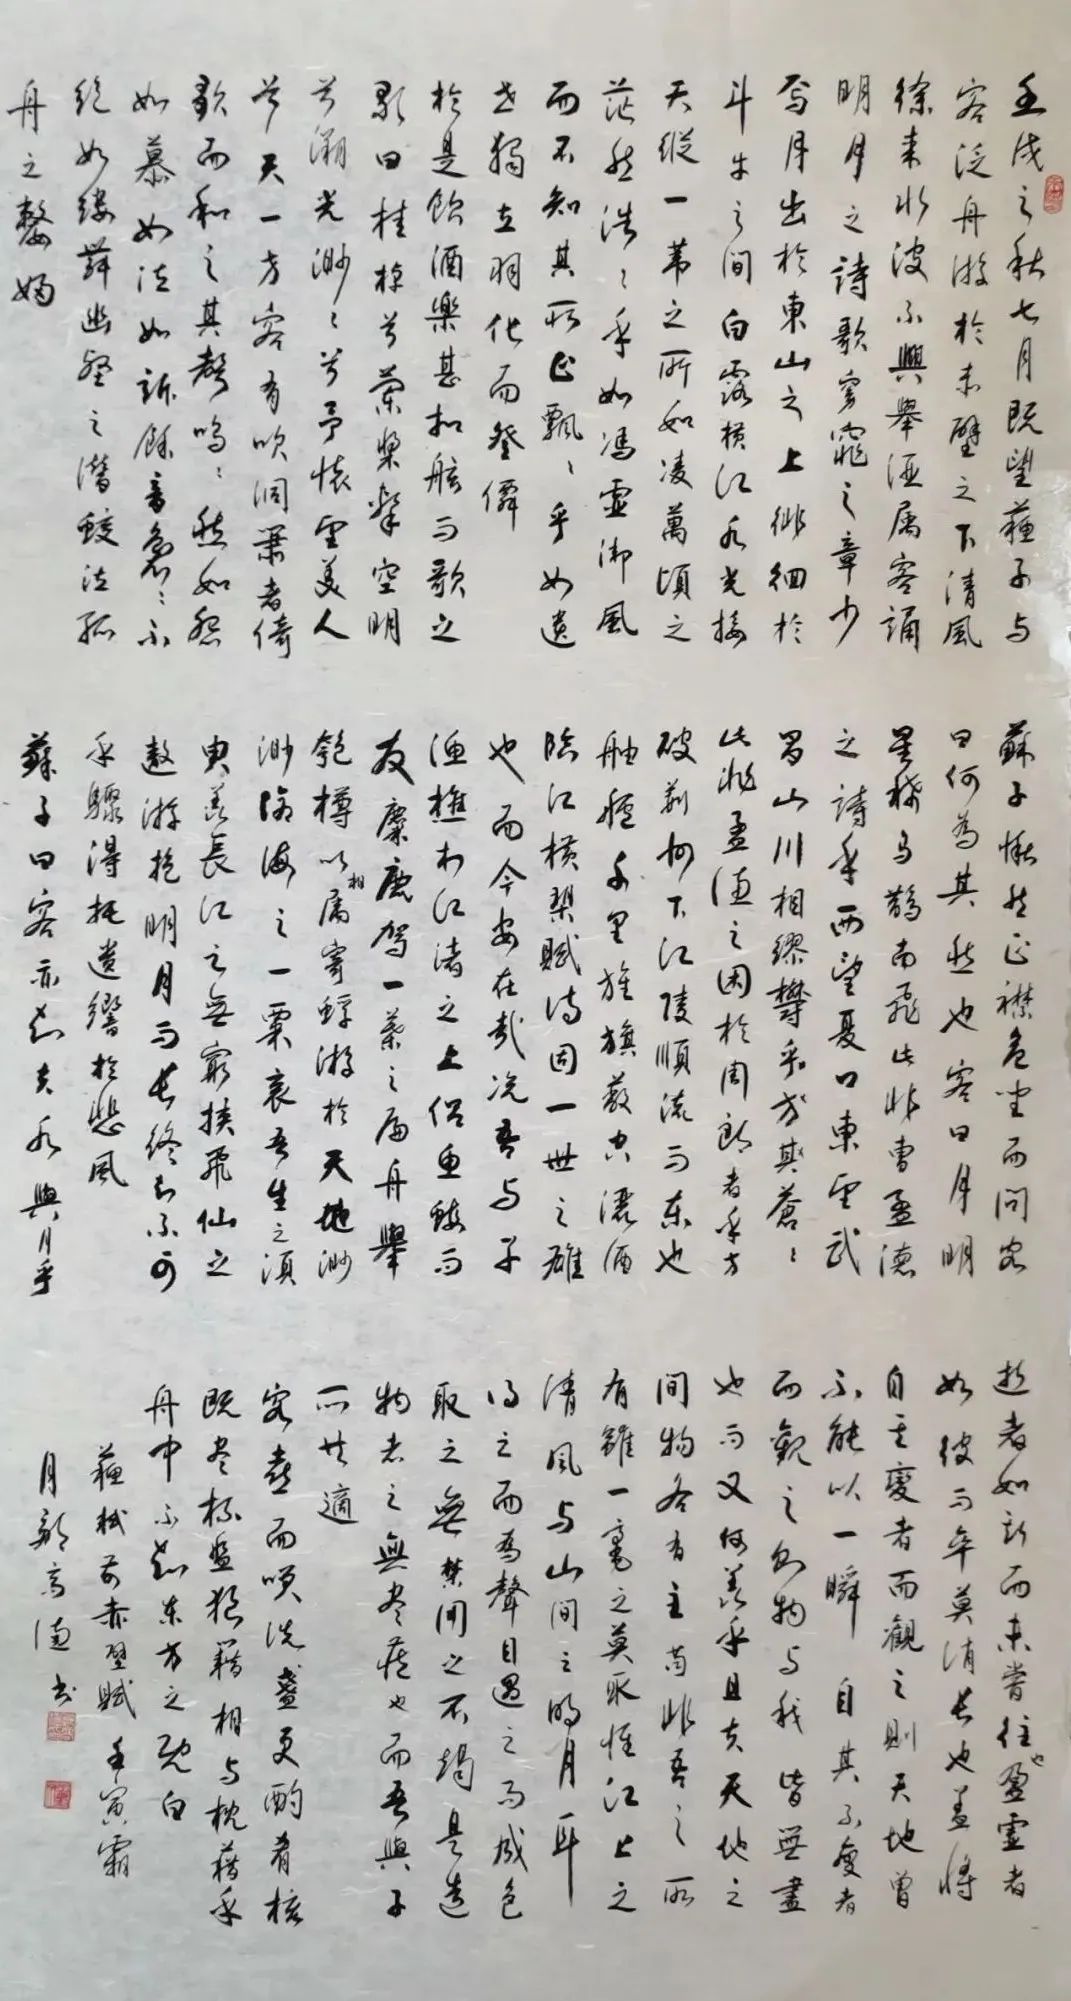 壬戌之秋七月既望蘇子与
客泛舟游於赤壁之下清風
徐来水波不興舉酒属客誦
明月之詩歌窈窕之章少
焉月出於東山之上徘徊於
斗牛之間白露横江水光接
天縱一葦之所如凌萬頃之
茫然浩浩乎如馮虚御風
而不知其所止飄飄乎如遗
世獨立羽化而登僊
於是飲酒樂甚扣舷而歌之
歌曰桂棹兮蘭槳擊空明
兮溯流光渺渺兮予懷望美人
兮天一方客有吹洞簫者倚
歌而和之其聲嗚嗚然如怨
如慕如泣如訴餘音裊裊不
絕如縷舞幽壑之潛蛟泣孤
舟之嫠婦
蘇子愀然正襟危坐而問客
曰何為其然也客曰月明
星稀烏鵲南飛此非曹孟德
之詩乎西望夏口東望武
昌山川相繆鬱乎蒼蒼
此非孟德之困於周郎者乎方
破荊州下江陵順流而東也
舳艫千里旌旗蔽空灑酒
臨江横槊賦诗固一世之雄
也而今安在哉况吾与子
渔樵於江渚之上侣鱼蝦而
友麋鹿驾一葉之扁舟舉
匏樽以相属寄蜉游於天地渺
渺滄海之一粟哀吾生之須
臾羡長江之無窮挟飛仙之
遨游抱明月而長終知不可
乎驟得托遗響於悲風
蘇子曰客亦知夫水與月乎
逝者如斯而未嘗往也盈虚者
如彼而卒莫消長也盖將
自其變者而觀之則天地曾
不能以一瞬自其不變者
而觀之則物与我皆無盡
也而又何羡乎且夫天地之
間物各有主苟非吾之所
有雖一毫之莫取惟江上之
清風与山間之明月耳
得之而為聲目遇之而成色
取之無禁用之不竭是造
物者之無尽藏也而吾與子
所共適
客喜而笑洗盞更酌肴核
既尽杯盤狼籍相与枕藉乎
舟中不知東方之既白
蘇軾前赤壁賦 壬寅霜
月 高德书